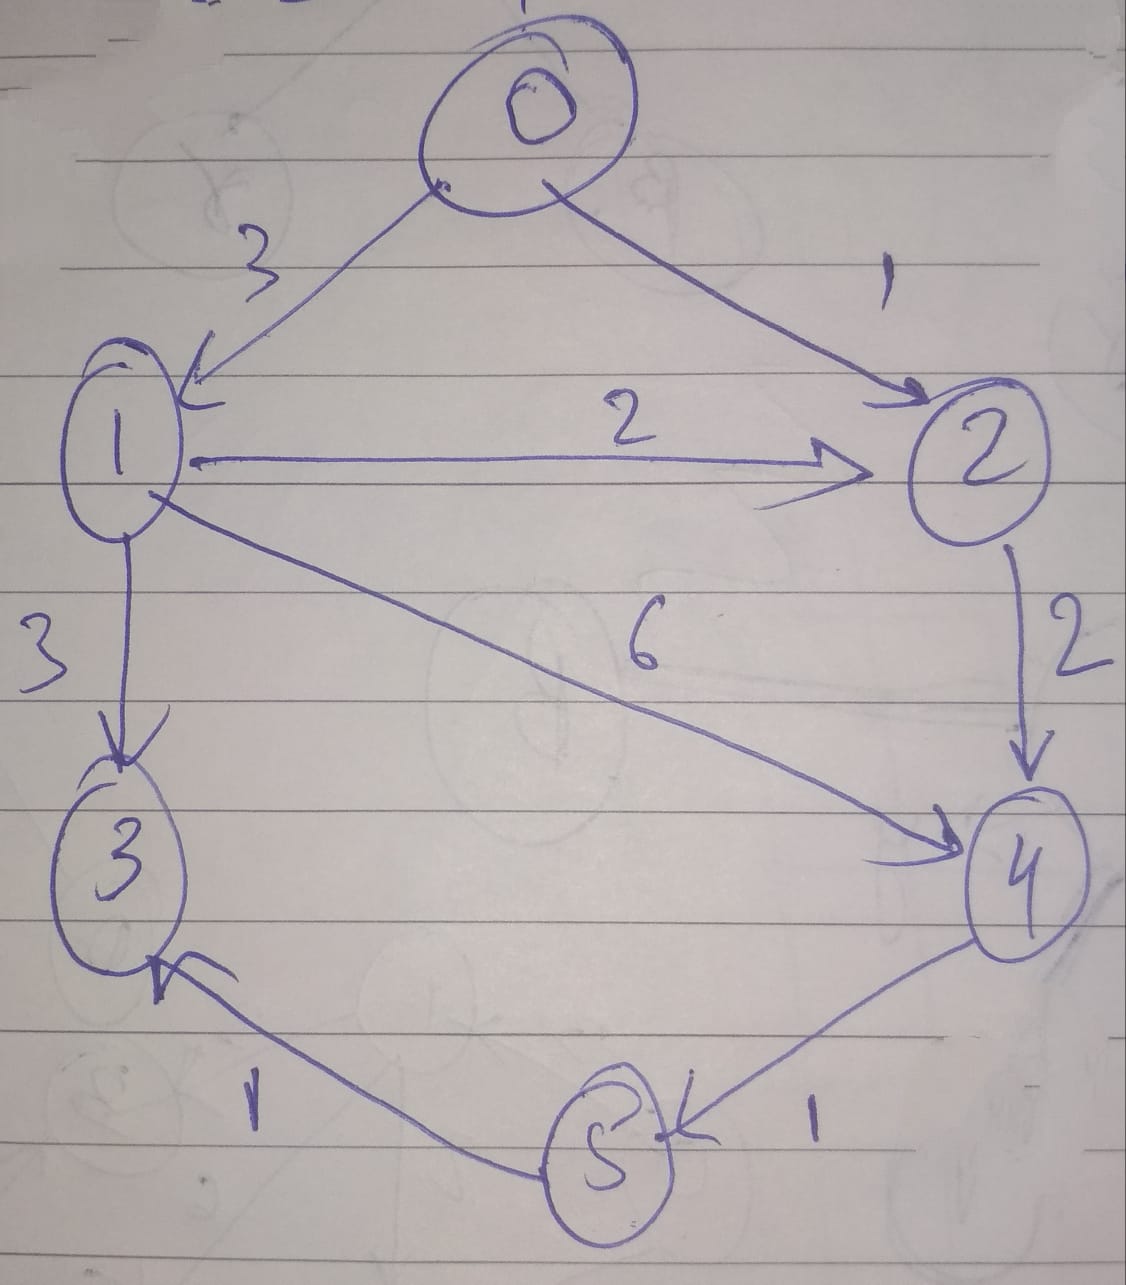 0
3
1
1
2
2
3
6
2
3
4
1
1
5